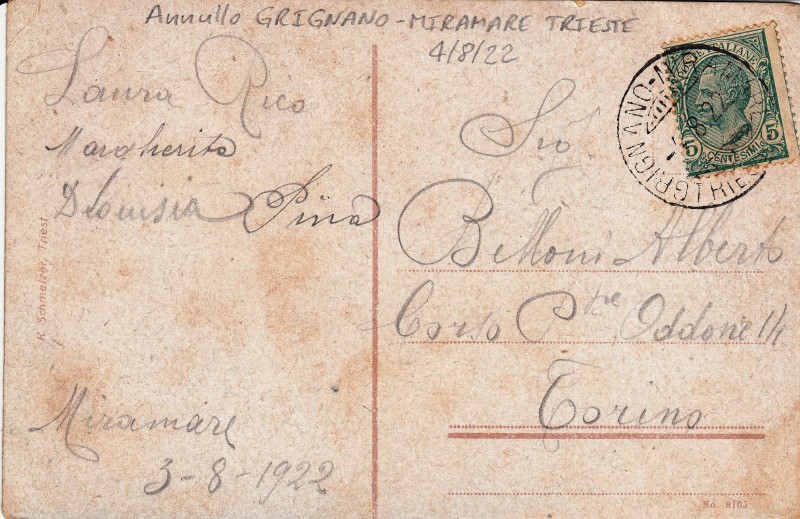 Annullo GRIGNANO-MIRAMARE TRIESTE
4/8/22
Laura Rico
Margherita
Dionisia Pina
Miramare
3-8-1922
K. Schmelzer, Triest.
POSTE ITALIANE
5 CENTESIMI 5
GRIGNANO-M
TRIES
8 22
Sig
Belloni Alberto
Corso Ppe Oddone 1/4
Torino
No. 8103